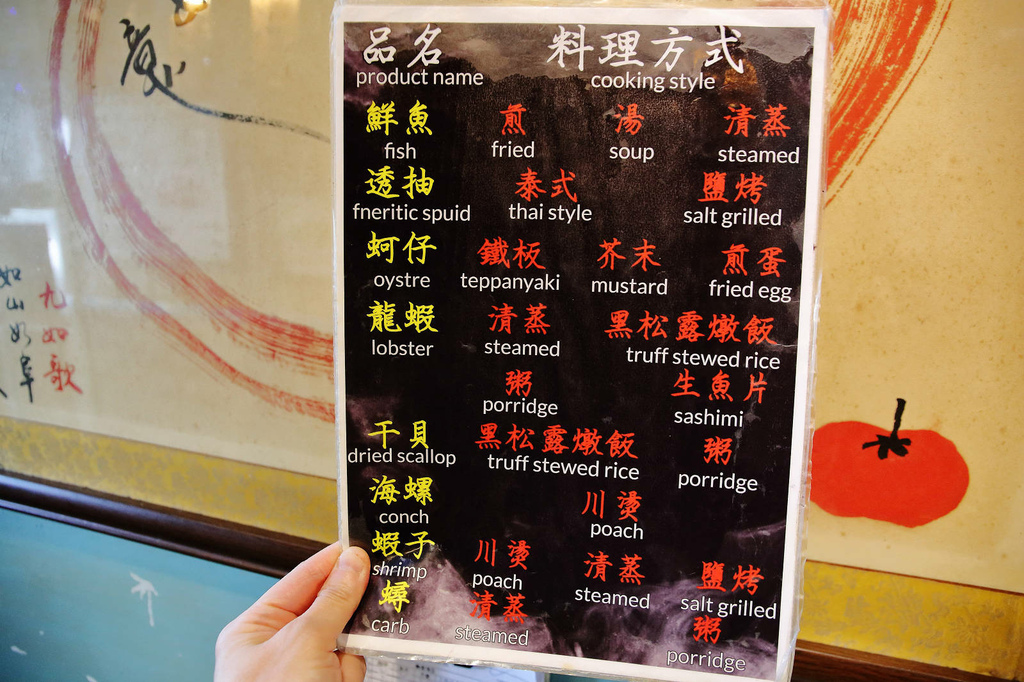 品名 料理方式
product name cooking style
鮮魚 煎 湯 清蒸
fish fried soup steamed
透抽 泰式 鹽烤
fneritic spuid thai style salt grilled
蚵仔 鐵板 芥末 煎蛋
oystre teppanyaki mustard fried egg
龍蝦 清蒸 黑松露燉飯
lobster steamed truff stewed rice
粥 生魚片
porridge sashimi
干貝 黑松露燉飯 粥
dried scallop truff stewed rice porridge
海螺 川燙
conch poach
蝦子 川燙 清蒸 鹽烤
shrimp poach steamed salt grilled
蟳 清蒸 粥
carb steamed porridge
九如歌
如山如阜